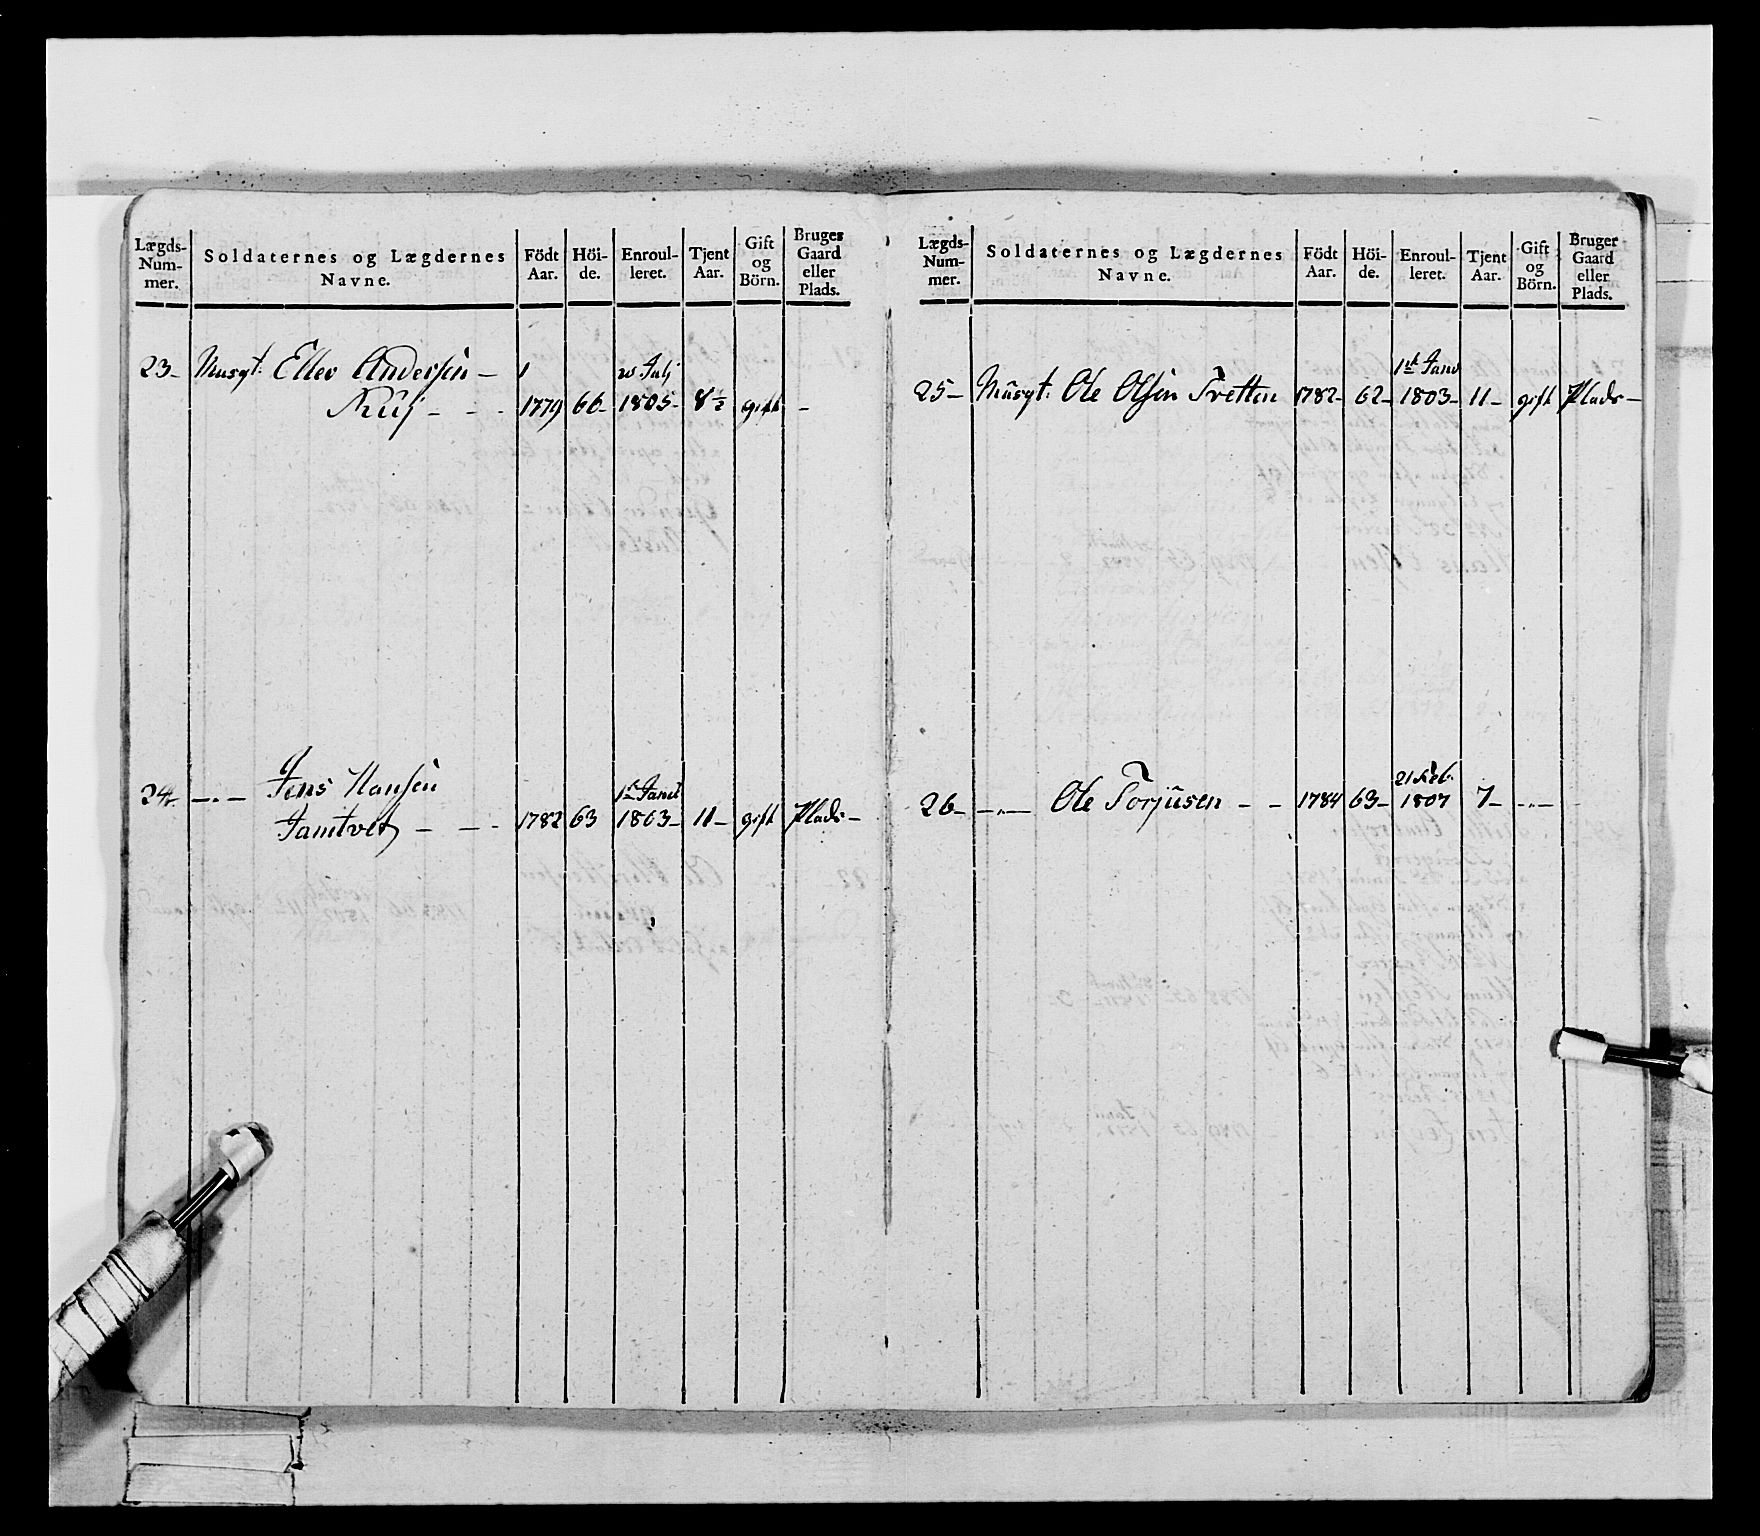 Lægds-
Num-
mer.
Soldaternes og Lægdernes
Navne.
Födt
Aar.
Höi-
de.
Enroul-
leret.
Tjent
Aar.
Gift
og
Börn.
Bruger
Gaard
eller
Plads.
23- Musqt: Eller Andersen -
1779 66- 1805- 8½ gift -
24- -„- Jens Hansen
Jamtvet - - - 1782 63 1803- 11- gift Plads-
Lægds-
Num-
mer.
Soldaternes og Lægdernes
Navne.
Födt
Aar.
Höi-
de.
Enroul-
leret.
Tjent
Aar.
Gift
og
Börn.
Bruger
Gaard
eller
Plads.
1st Janv
25- Musqt: Ole Olsen Tretten 1782- 62- 1803- 11- gift Plads-
21 Feb.
26- -„- Ole Torjusen - - 1784 63- 1807 7- -„-